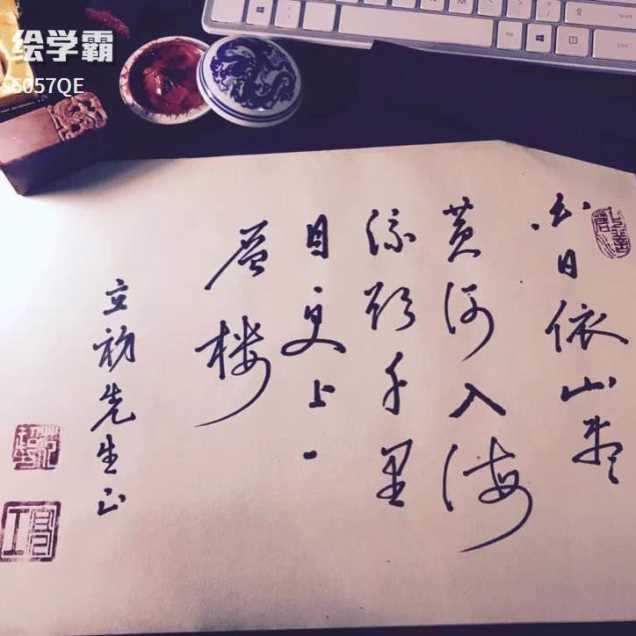 绘学霸
白日依山尽
黄河入海
流欲千里
目更上一
层楼
立初先生正